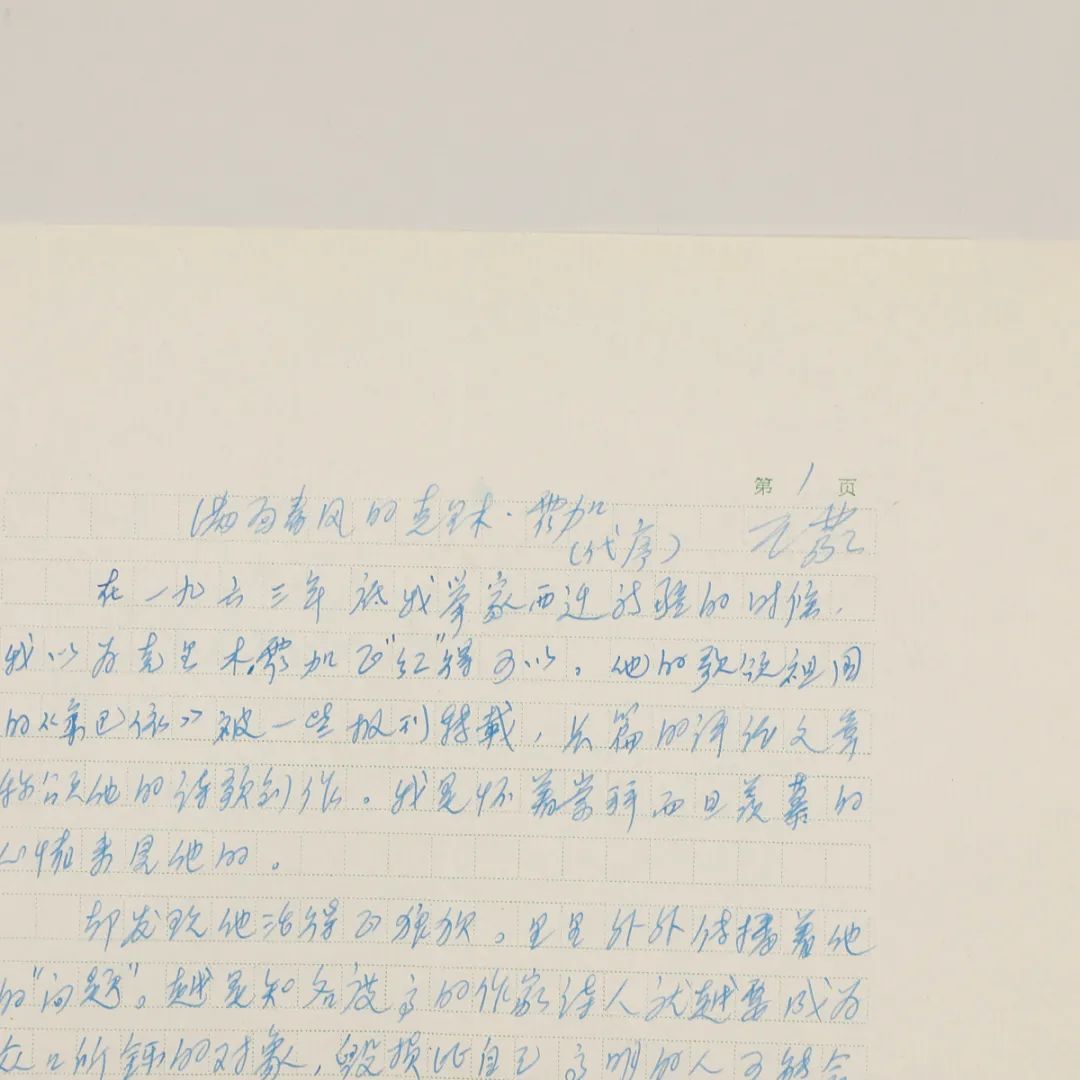 第 1 页
满面春风的克里木·霍加
(代序) 王蒙
在一九六三年底我举家西迁新疆的时候,
我以为克里木霍加正“红”得可以。他的歌颂祖国
的《柔巴依》被一些报刊转载,长篇的评论文章
称颂他的诗歌创作。我是怀着崇拜而且羡慕的
心情来见他的。
却发现他活得正狼狈。里里外外传播着他
的“问题”。越是知名度高的作家诗人就越要成为
众口所钟的对象,毁损比自己高明的人可能会